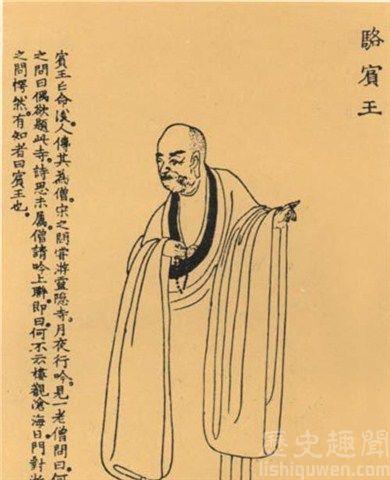 駱賓王
賓王亡命後人傳其為僧宋之問嘗游靈隐寺。月夜行吟見一老僧問曰何
之問曰偶欲題此寺。詩思未屬。僧請吟上聯即曰何不云樓觀滄海日門對
之問愕然。有知者曰賓王也。
歷史趣聞
lishiquwen.com